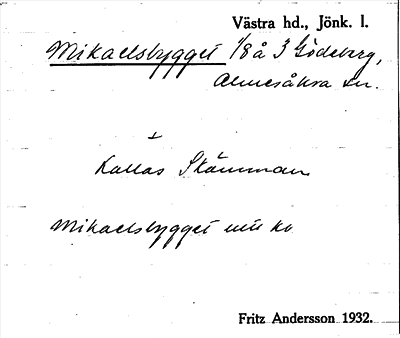 Västra hd., Jönk. l.
Mikaelsbygget 1/8 å 3 Gödeberg,
Almesåkra sn.
+
Kallas Stämman
Mikaelsbygget
Fritz Andersson 1932.